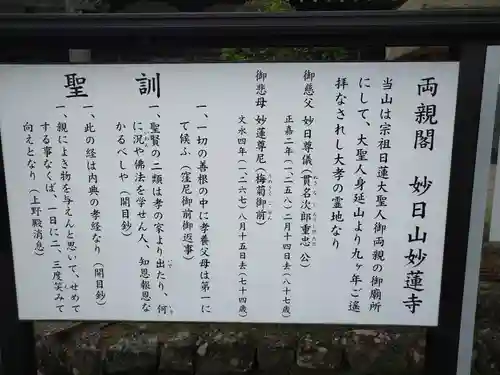 両親閣　妙日山妙蓮寺
当山は宗祖日蓮大聖人御両親の御廟所
にして、大聖人身延山より九ヶ年ご遙
拝なされし大孝の霊地なり
御慈父　妙日尊儀（貫名次郎重忠　公）
正嘉二年（一、二五八）二月十四日去（八十七歳）
御悲母　妙蓮尊尼（梅菊御前）
文永四年（一、二六七）八月十五日去（七十四歳）
聖　訓
一、一切の善根の中に孝養父母は第一に
て候ふ（窪尼御前御返事）
一、聖賢の二類は孝の家より出たり、何
に況や佛法を学せん人、知恩報恩な
かるべしや（開目鈔）
一、此の経は内典の孝経なり（開目鈔）
一、親によき物を与えんと思いて、せめて
する事なくば、一日に二、三度笑みて
向えとなり（上野殿消息）